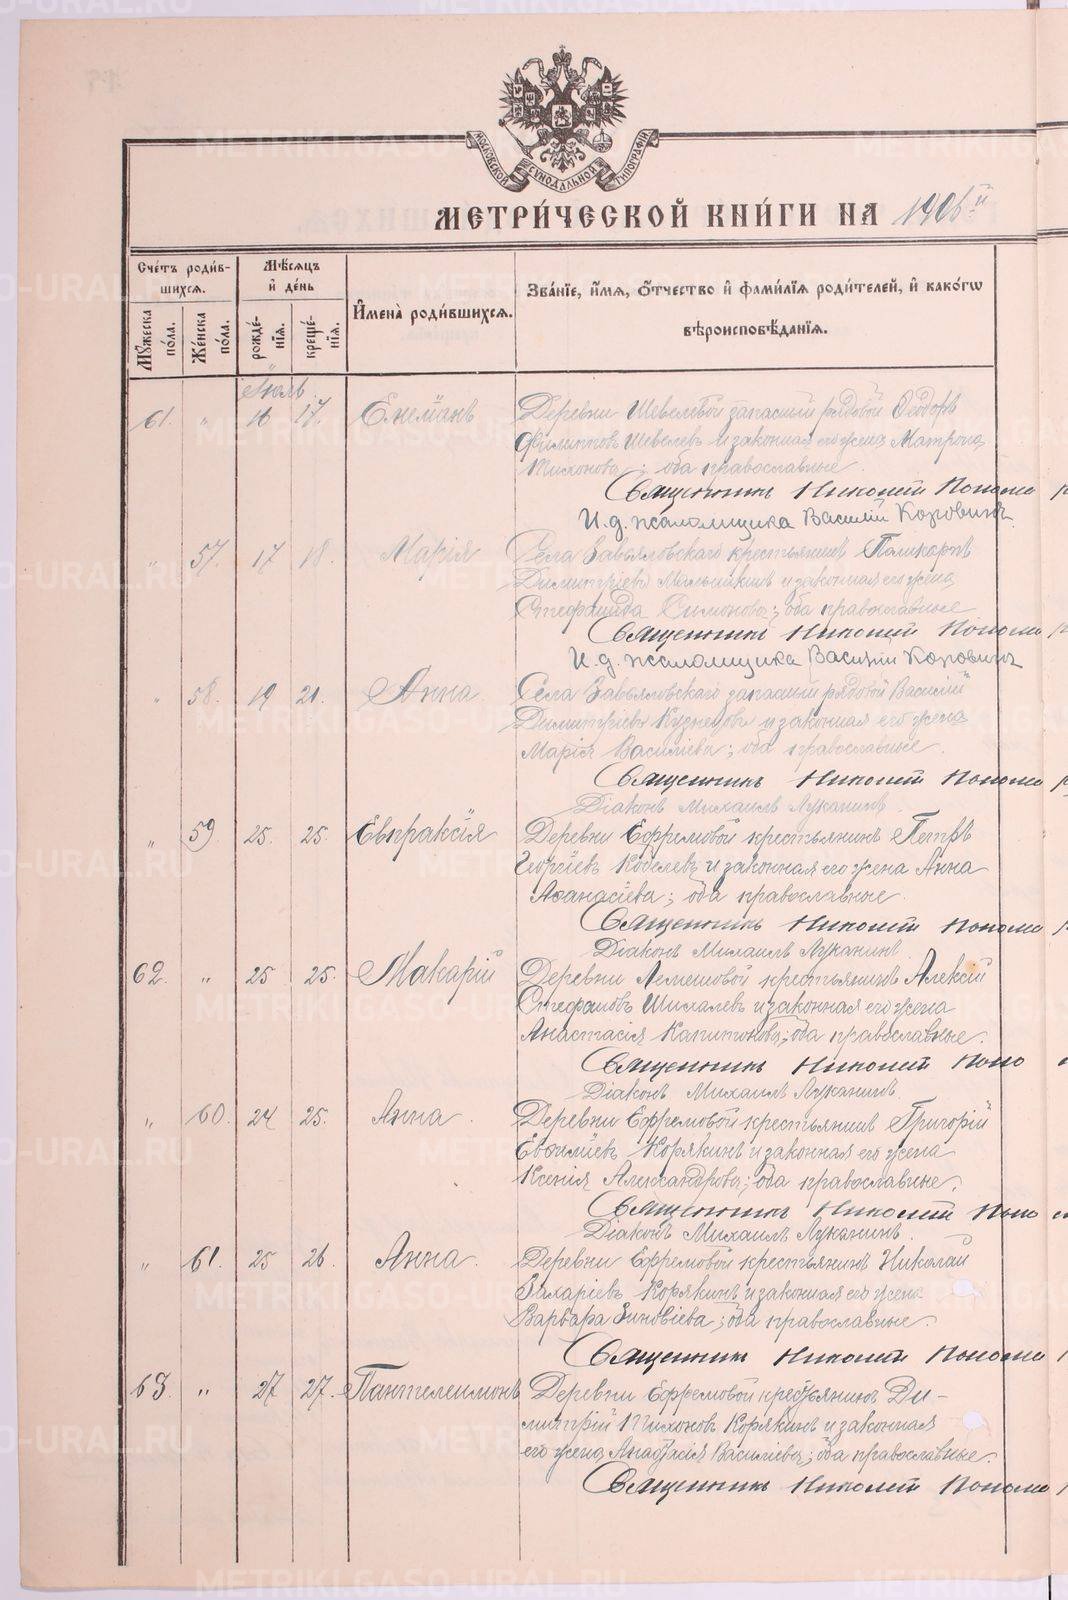 МОСКОВСКОЙ СѴНОДАЛЬНОЙ ТИПОГРАФІИ
МЕТРИ́ЧЕСКОЙ КНИ́ГИ НА 1906й
Сче́тъ роди́вшихсѧ.
Мꙋ́жеска по́ла.
Же́нска по́ла.
Мѣ́сѧцъ и҆ де́нь
рожде́нїѧ.
креще́нїѧ.
И҆мена̀ роди́вшихсѧ.
Зва́нїе, и҆́мѧ, ѻ҆́тчество и҆ фами́лїѧ роди́телей, и҆ како́гѡ
вѣроисповѣ́данїѧ.
Іюль
61. " 16 17. Деревни Шевелевой запасный рядовой Ѳеодоръ
Филипповъ Шевелевъ и законная его жена Матрона
Тихонова; оба православные.
Священникъ Николай Понома
И.д. псаломщика Василій Коровинъ
" 57. 17 18. Марія Села Завьяловскаго крестьянинъ Поликарпъ
Димитріевъ Мальчикинъ и законная его жена
Стефанида Симонова; оба православные
Священникъ Николай Понома
И.д. псаломщика Василій Коровинъ
" 58. 19 21. Анна Села Завьяловскаго запасный рядовой Василій
Димитріевъ Кузнецовъ и законная его жена
Марія Василіева; оба православные.
Священникъ Николай Пономо
Діаконъ Михаилъ Луканинъ.
" 59 25. 25. Евпраксія Деревни Ефремовой крестьянинъ Петръ
Георгіевъ Кобелевъ и законная его жена Анна
Аѳанасіева; оба православные.
Священникъ Николай Пономо
Діаконъ Михаилъ Луканинъ.
62. " 25 25. Макарій Деревни Лемешовой крестьянинъ Алексій
Стефановъ Шихалевъ и законная его жена
Анастасія Капитонова; оба православные.
Священникъ Николай Поно
Діаконъ Михаилъ Луканинъ.
" 60. 24 25. Анна Деревни Ефремовой крестьянинъ Григорій
Евѳиміевъ Корякинъ и законная его жена
Ксенія Александрова; оба православные.
Священникъ Николай Поно
Діаконъ Михаилъ Луканинъ.
" 61. 25 26. Анна. Деревни Ефремовой крестьянинъ Николай
Захаріевъ Корякинъ и законная его жена
Варвара Зиновіева; оба православные.
Священникъ Николай Пономо
63. " 27 27. Пантелеимонъ Деревни Ефремовой крестьянинъ Ди-
митрій Тихоновъ Корякинъ и законная
его жена Анастасія Василіева; оба православные.
Священникъ Николай Пономо
METRIKI.GASO-URAL.RU